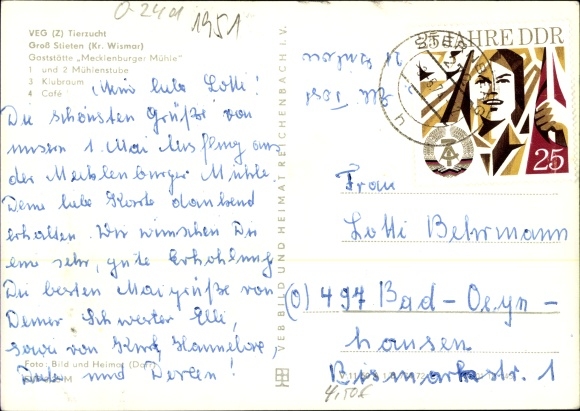 O-24d
1951
VEG (Z) Tierzucht
Groß Stieten (Kr. Wismar)
Gaststätte „Mecklenburger Mühle"
1 und 2 Mühlenstube
3 Klubraum
4 Café
Meine liebe Lotti!
Die schönsten Grüße von
unserm 1. Mai Ausflug aus
der Mecklenburger Mühle.
Deine liebe Karte dankend
erhalten. Wir wünschen Dir
eine sehr, gute Erholung
Die besten Maigrüße von
Deiner Schwester Elli,
sowie von Kurt, Hannelore,
und Doreen!
Foto: Bild und Heimat
VEB BILD UND HEIMAT REICHENBACH I. V.
25 JAHRE DDR
25
Frau
Lotti Behrmann
(0) 497 Bad-Oeyn-
hausen
Bismarkstr. 1
4,50€